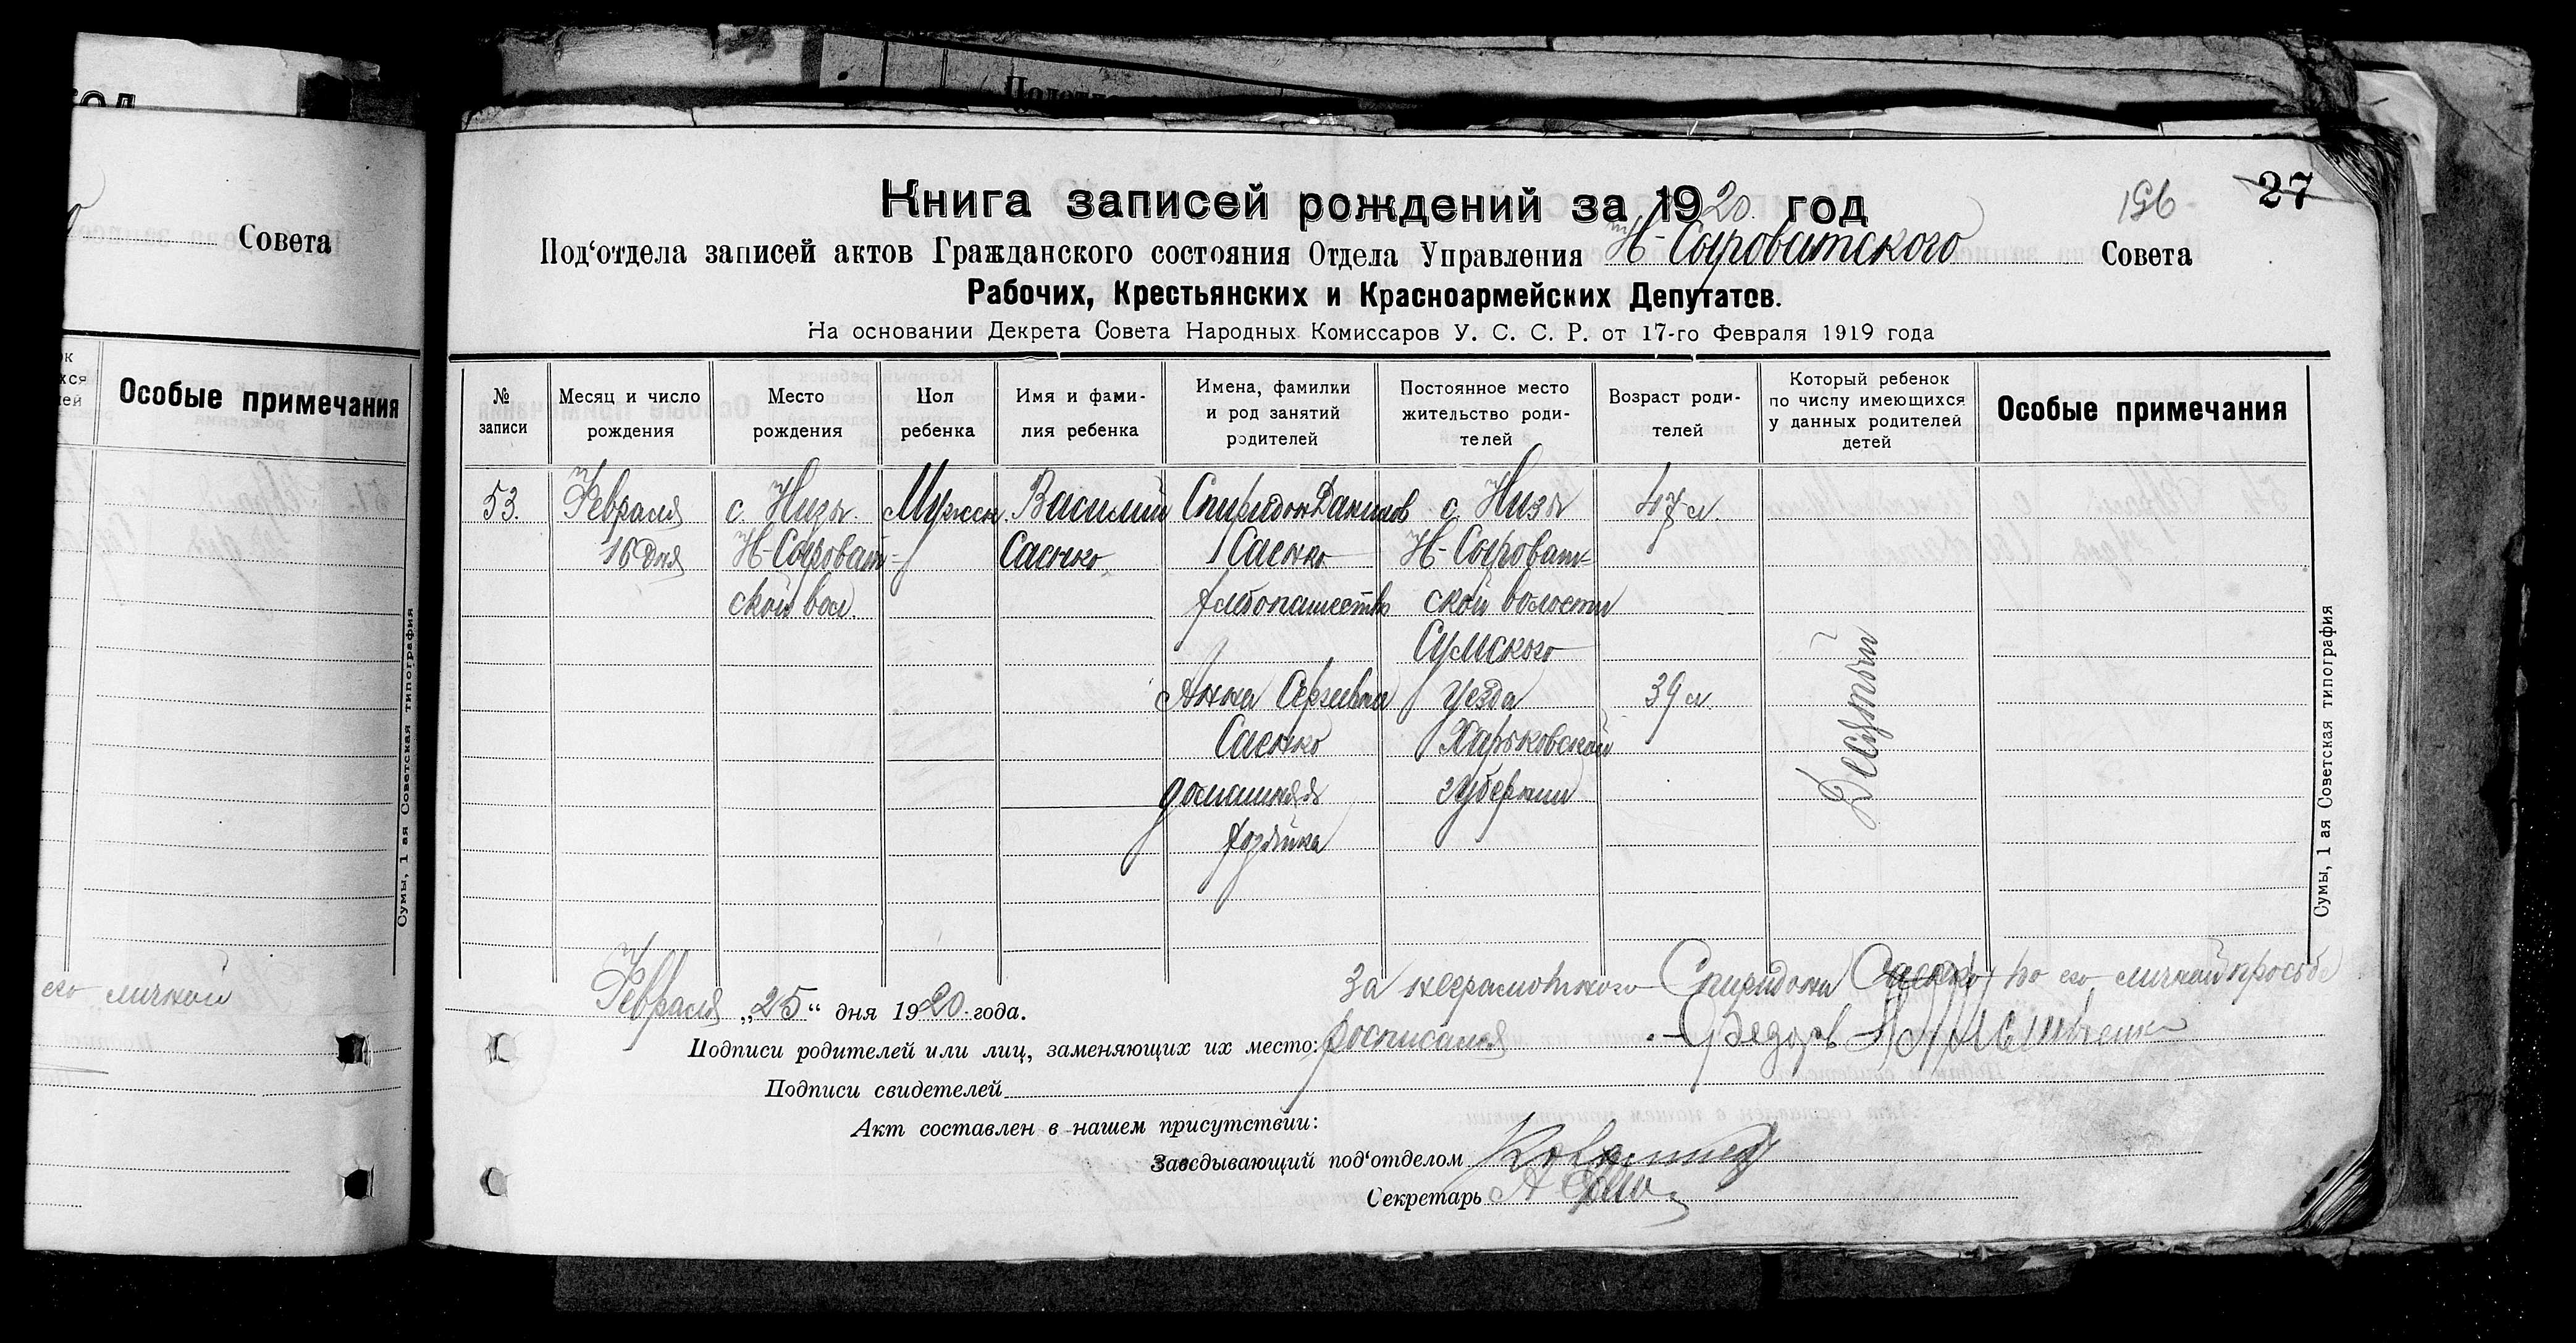 од
Совета
Особые примечания
Сумы, 1 ая Советская типография
его личной
196
27
Книга записей рождений за 1920 год
Под‘отдела записей актов Гражданского состояния Отдела Управления Н-Сыроватского Совета
Рабочих, Крестьянских и Красноармейских Депутатов.
На основании Декрета Совета Народных Комиссаров У. С. С. Р. от 17-го Февраля 1919 года
№ записи
Месяц и число рождения
Место рождения
Пол ребенка
Имя и фамилия ребенка
Имена, фамилии и род занятий родителей
Постоянное место жительство родителей
Возраст родителей
Который ребенок по числу имеющихся у данных родителей детей
Особые примечания
53. Февраля с. Низы. Мужск. Василий Спиридон Данилов с. Низы 47 л.
16 дня Н-Сыроват- Саенко Саенко Н-Сыроват-
ской вол. хлебопашество ской волости
Сумского
Анна Сергеевна уезда 39 л.
Саенко Харьковской
домашняя губернии
хозяйка
Десятый
Сумы, 1 ая Советская типография
Февраля „25“ дня 1920 года.
За неграмотного Спиридона Саенко по его личной просьбе
Подписи родителей или лиц, заменяющих их место: росписался Федоръ
Подписи свидетелей
Акт составлен в нашем присутствии:
Заведывающий под‘отделом
Секретарь